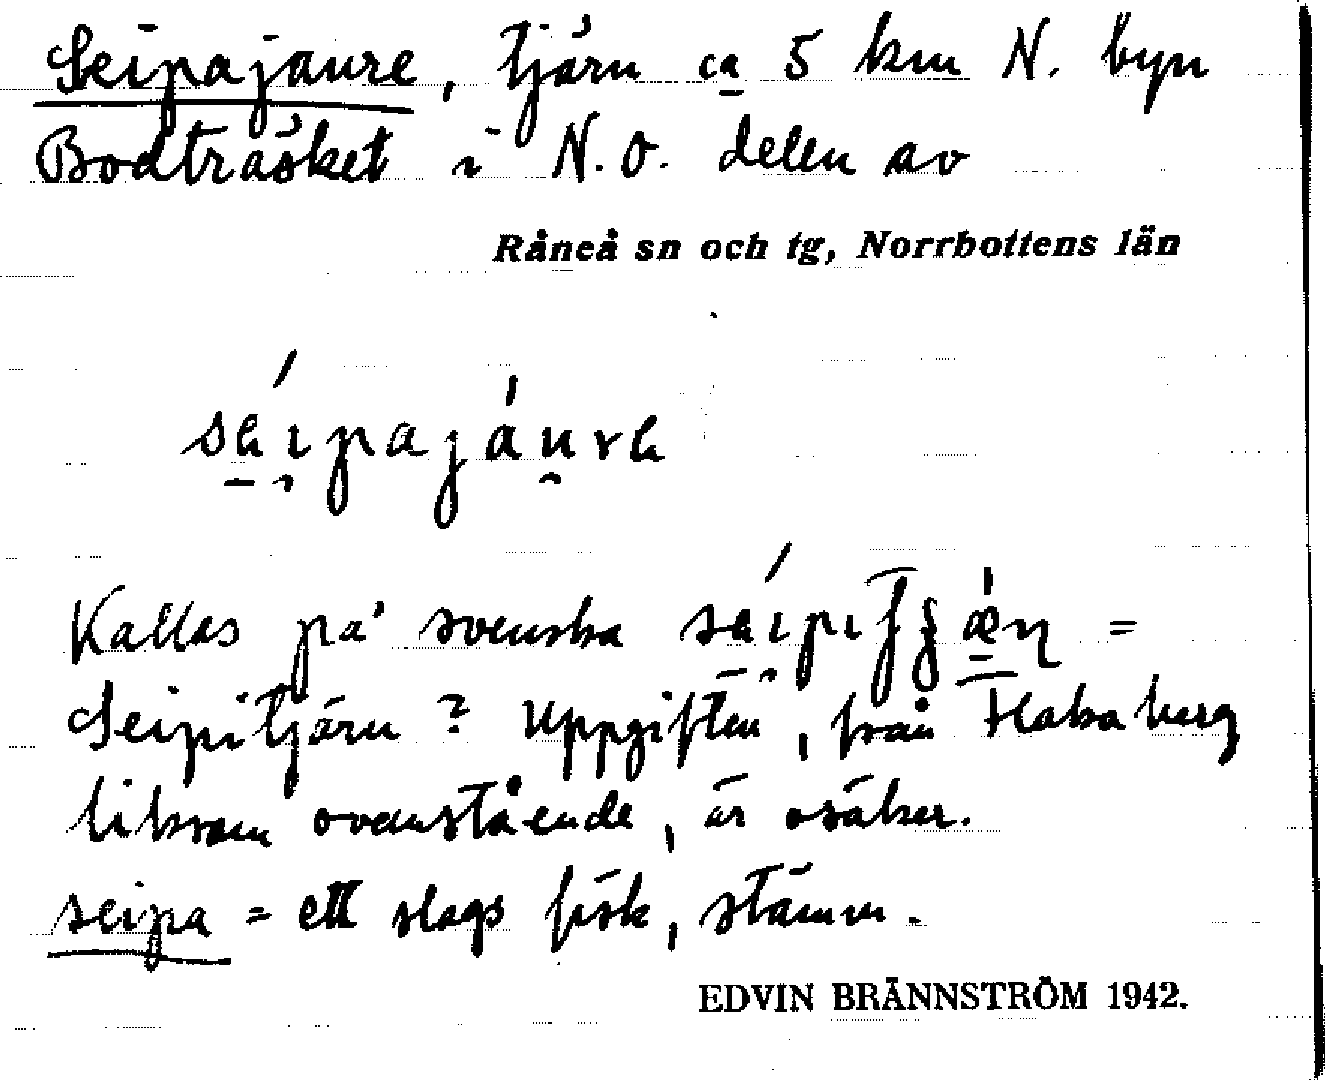 Seipajaure, tjärn ca 5 km N. byn
Bodträsket i N.O. delen av
Råneå sn och tg, Norrbottens län
Kallas på svenska =
Seipitjärn? Uppgiften, från Hakaberg
liksom ovanstående, är osäker.
seipa = ett slags fisk, stämm.
EDVIN BRÄNNSTRÖM 1942.